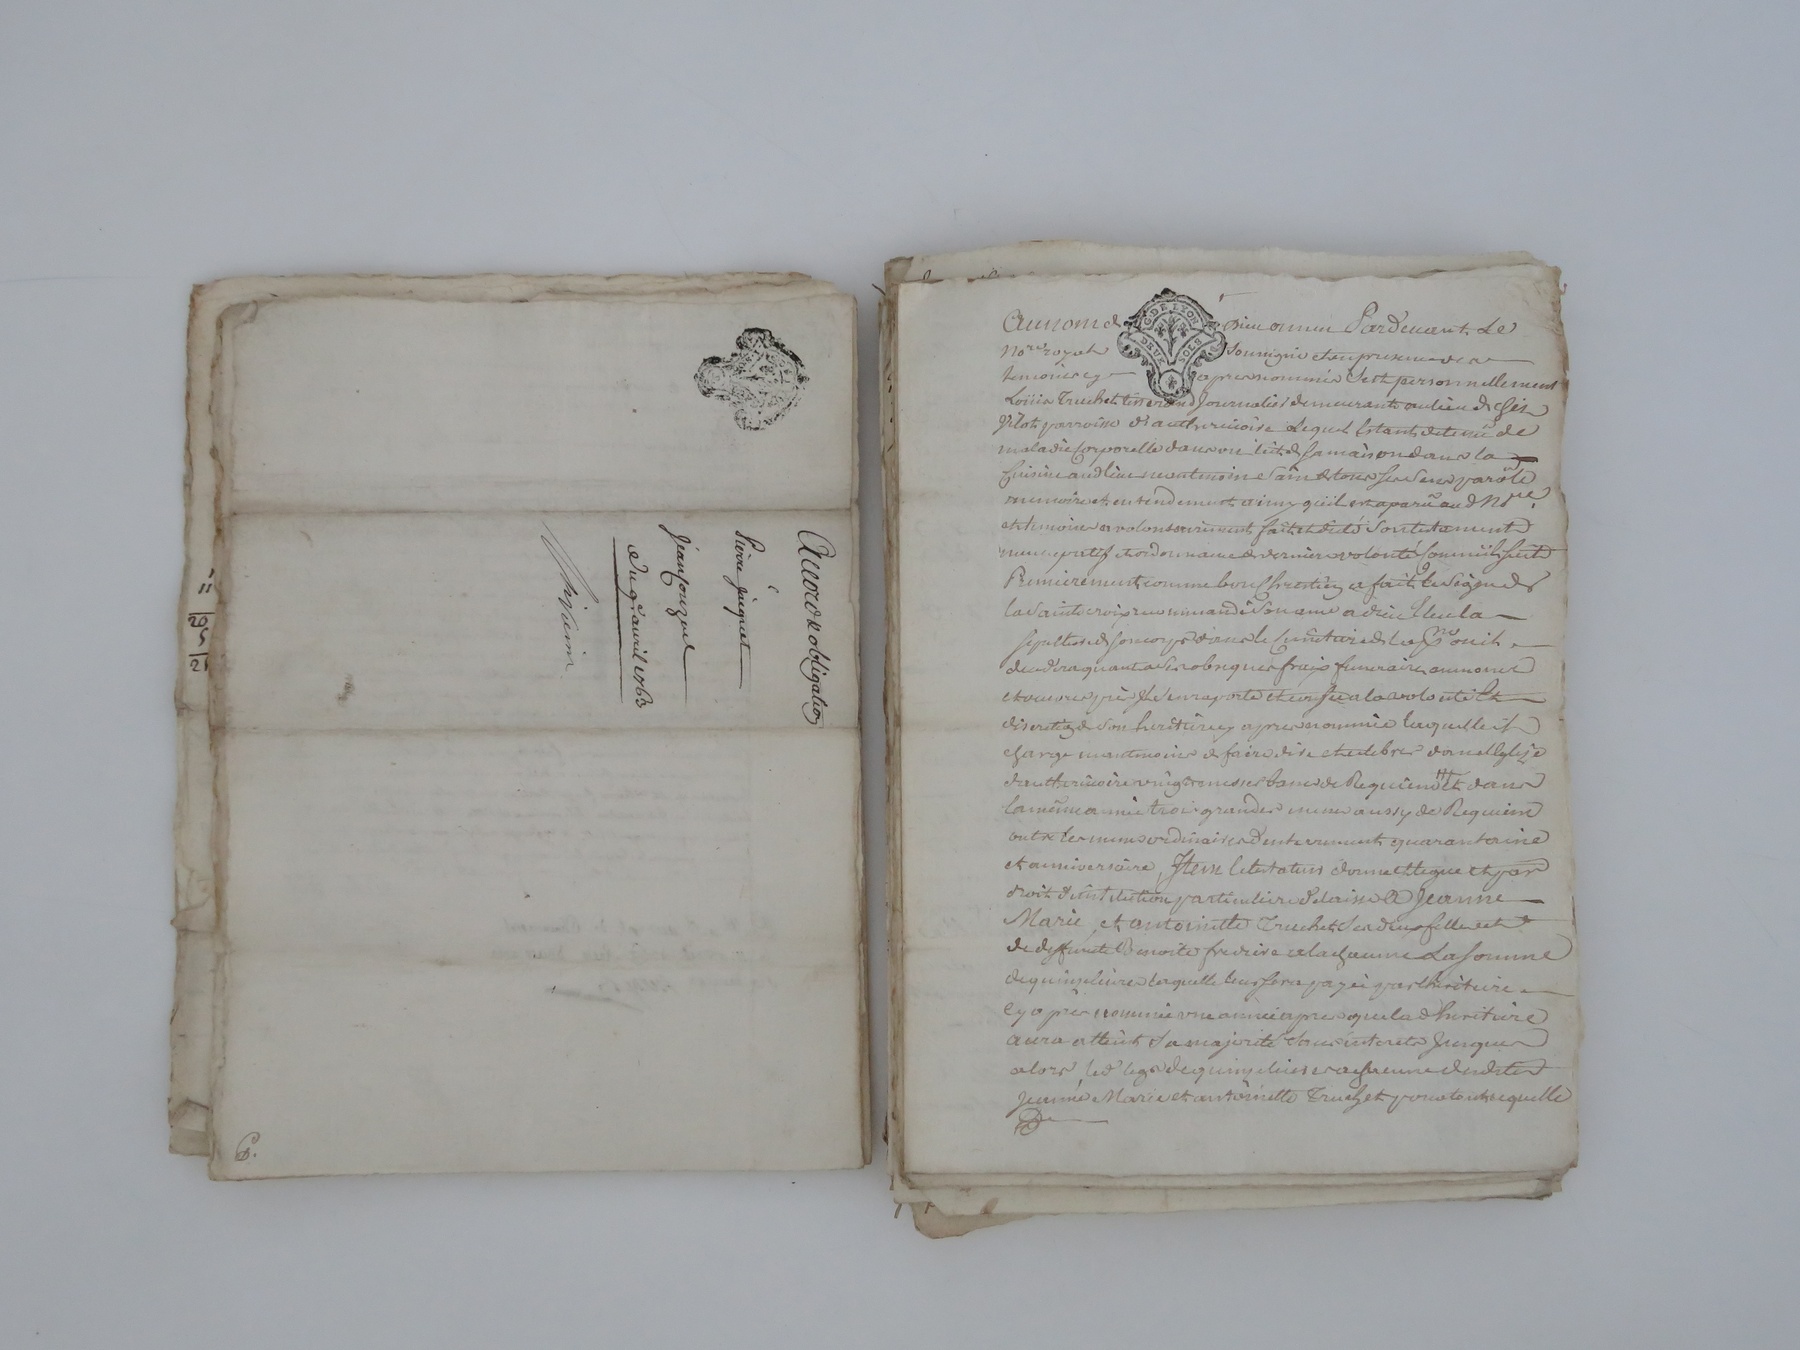 11
20
5
21
accord & obligation
Pierre jacquet
Jean
du 9 avril 1763
G. DE LYON
DEUX SOLS
Au nom de Dieu amen Pardevant Le
No.re royal soussigné et en presence des
temoins cy apres nommés s'est personnellement
Louis Truchet tisserand Journalier demeurant au lieu de
parroisse d'autherivoire lequel Estant detenu de
maladie Corporelle dans un lict de sa maison dans la
Cuisine aud lieu neantmoins sain de tous ses sens parolle
memoire et entendement ainsy qu'il est aparu aud No.re
et temoins a volontairement fait et dicté son testament
nuncupatif et ordonnance de derniere volonté comme s'ensuit
Premierement comme bon Chrestien a fait le signe de
la sainte croix recommandé son ame a dieu Eleu la
sepulture de son corps dans le Cimetiere de
quant a ses obseques fraix funeraires aumones
et oeuvres pies s'en raporte et confie a la volonté Et
discretion de son heritiere cy apres nommée laquelle il
charge neantmoins de faire dire et celebrer dans l'Eglise
d'autherivoire vingt messes basses de Requiem Et dans
la même année trois grandes messes aussy de Requiem
outre les messes ordinaires d'enterrement quarantaine
et anniversaire, Item le testateur donne et legue et par
droit d'institution particuliere delaisse a Jeanne
Marie et antoinette Truchet ses deux filles et
de deffunte Benoite a chacune La somme
de quinze livres laquelle leur sera payée par l'heritiere
cy après nommée une année apres que la d heritiere
aura atteint sa majorité sans interets Jusques
alors, led legs de quinze livres a chacune desdites
Jeanne Marie et antoinette Truchet pour tout ce quelle